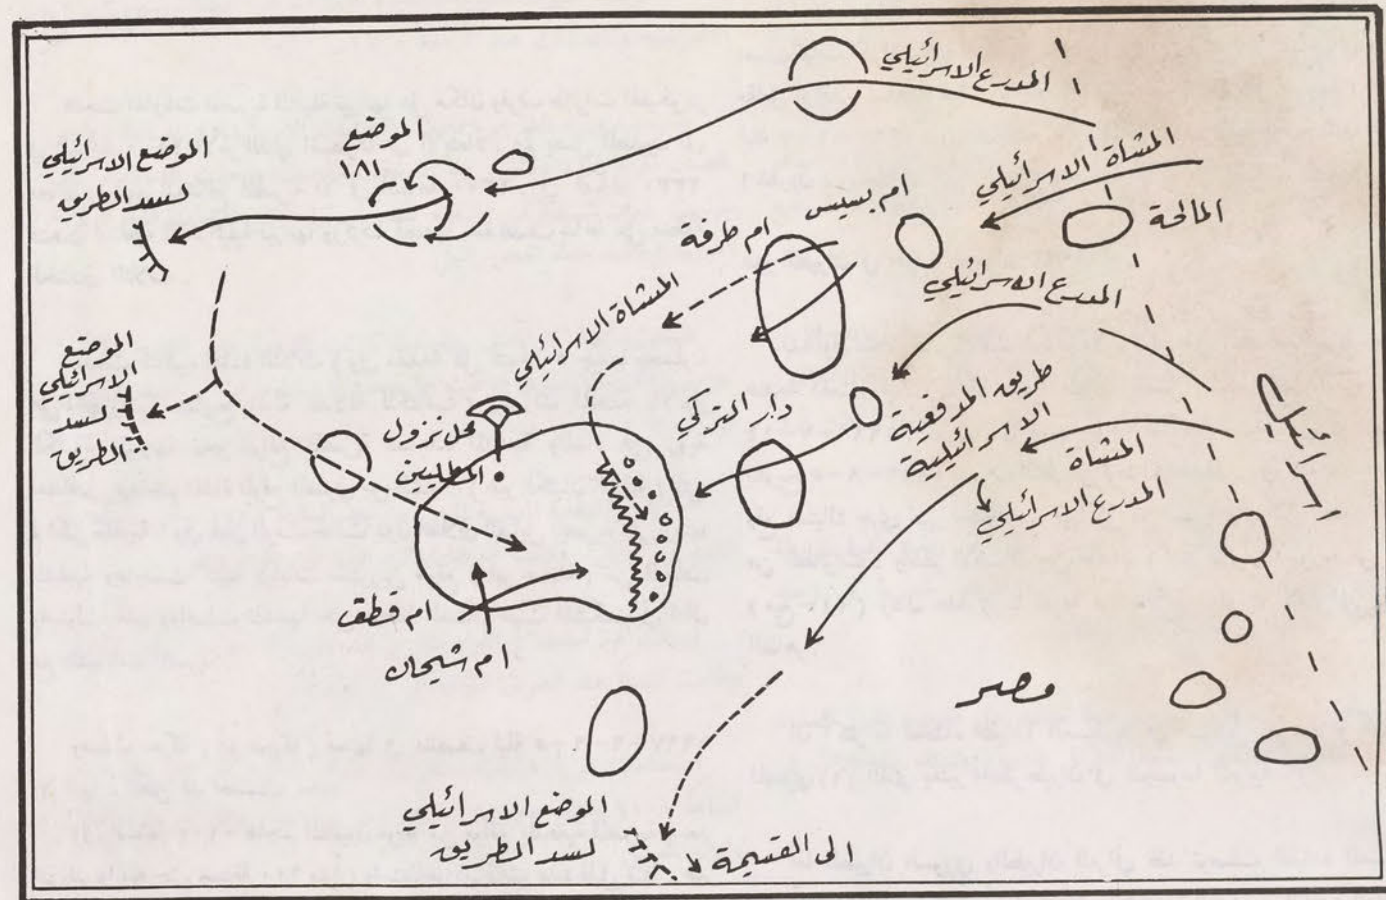 المدرع الاسرائيلي
المشاة الاسرائيلي
المالحة
ام بسيس
ام طرفة
الموضع
١٨١
الموضع الاسرائيلي
لسد الطريق
المدرع الاسرائيلي
المشاة الاسرائيلي
الموضع
الاسرائيلي
لسد
الطريق
محل نزول
المظليين
طريق المدفعية
الاسرائيلية
المشاة
المدرع الاسرائيلي
اسرائيل
ام قطق
ام شيحان
مصر
الموضع الاسرائيلي
لسد الطريق
الى القسيمة